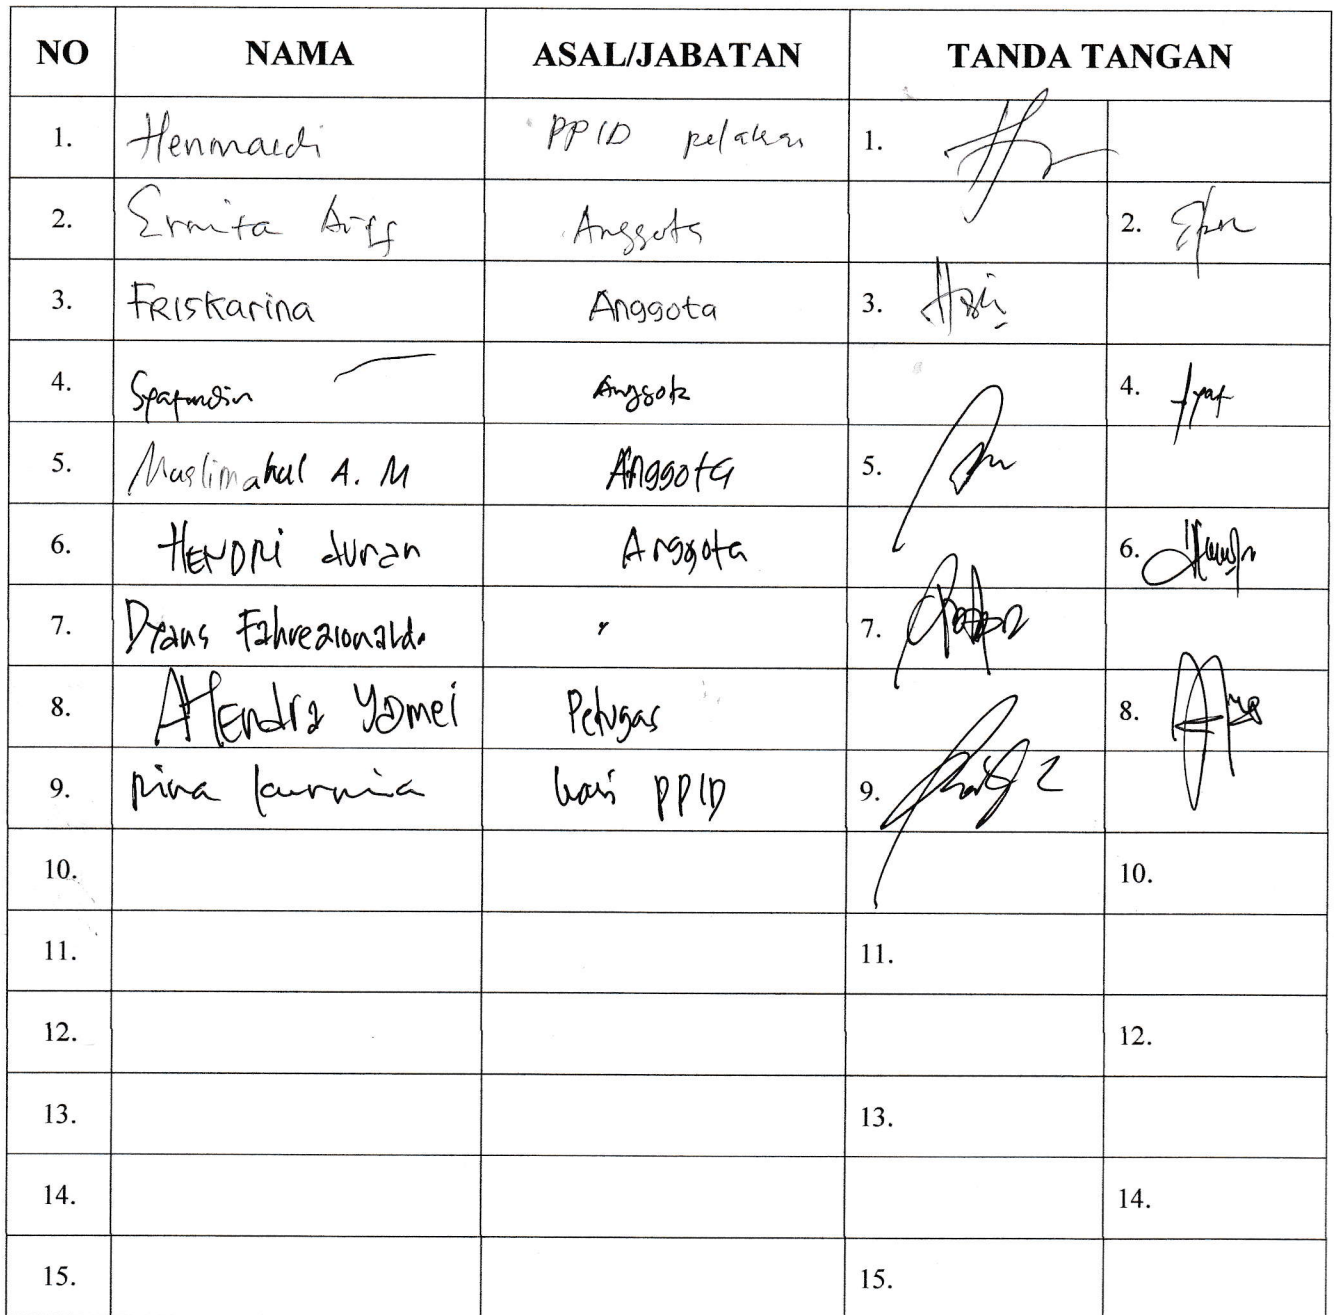 NO NAMA ASAL/JABATAN TANDA TANGAN
1. Henmaidi PPID pelaksan 1.
2. Ermita Arif Anggota 2.
3. FRISKarina Anggota 3.
4. Syafrudin Anggota 4. Syaf
5. Muslimahul A. M Anggota 5.
6. HENDRI Juran Anggota 6.
7. Dyans Fahrezionaldo " 7.
8. AHendra Yomei Petugas 8.
9. Rina kurnia PPID 9.
10. 10.
11. 11.
12. 12.
13. 13.
14. 14.
15. 15.